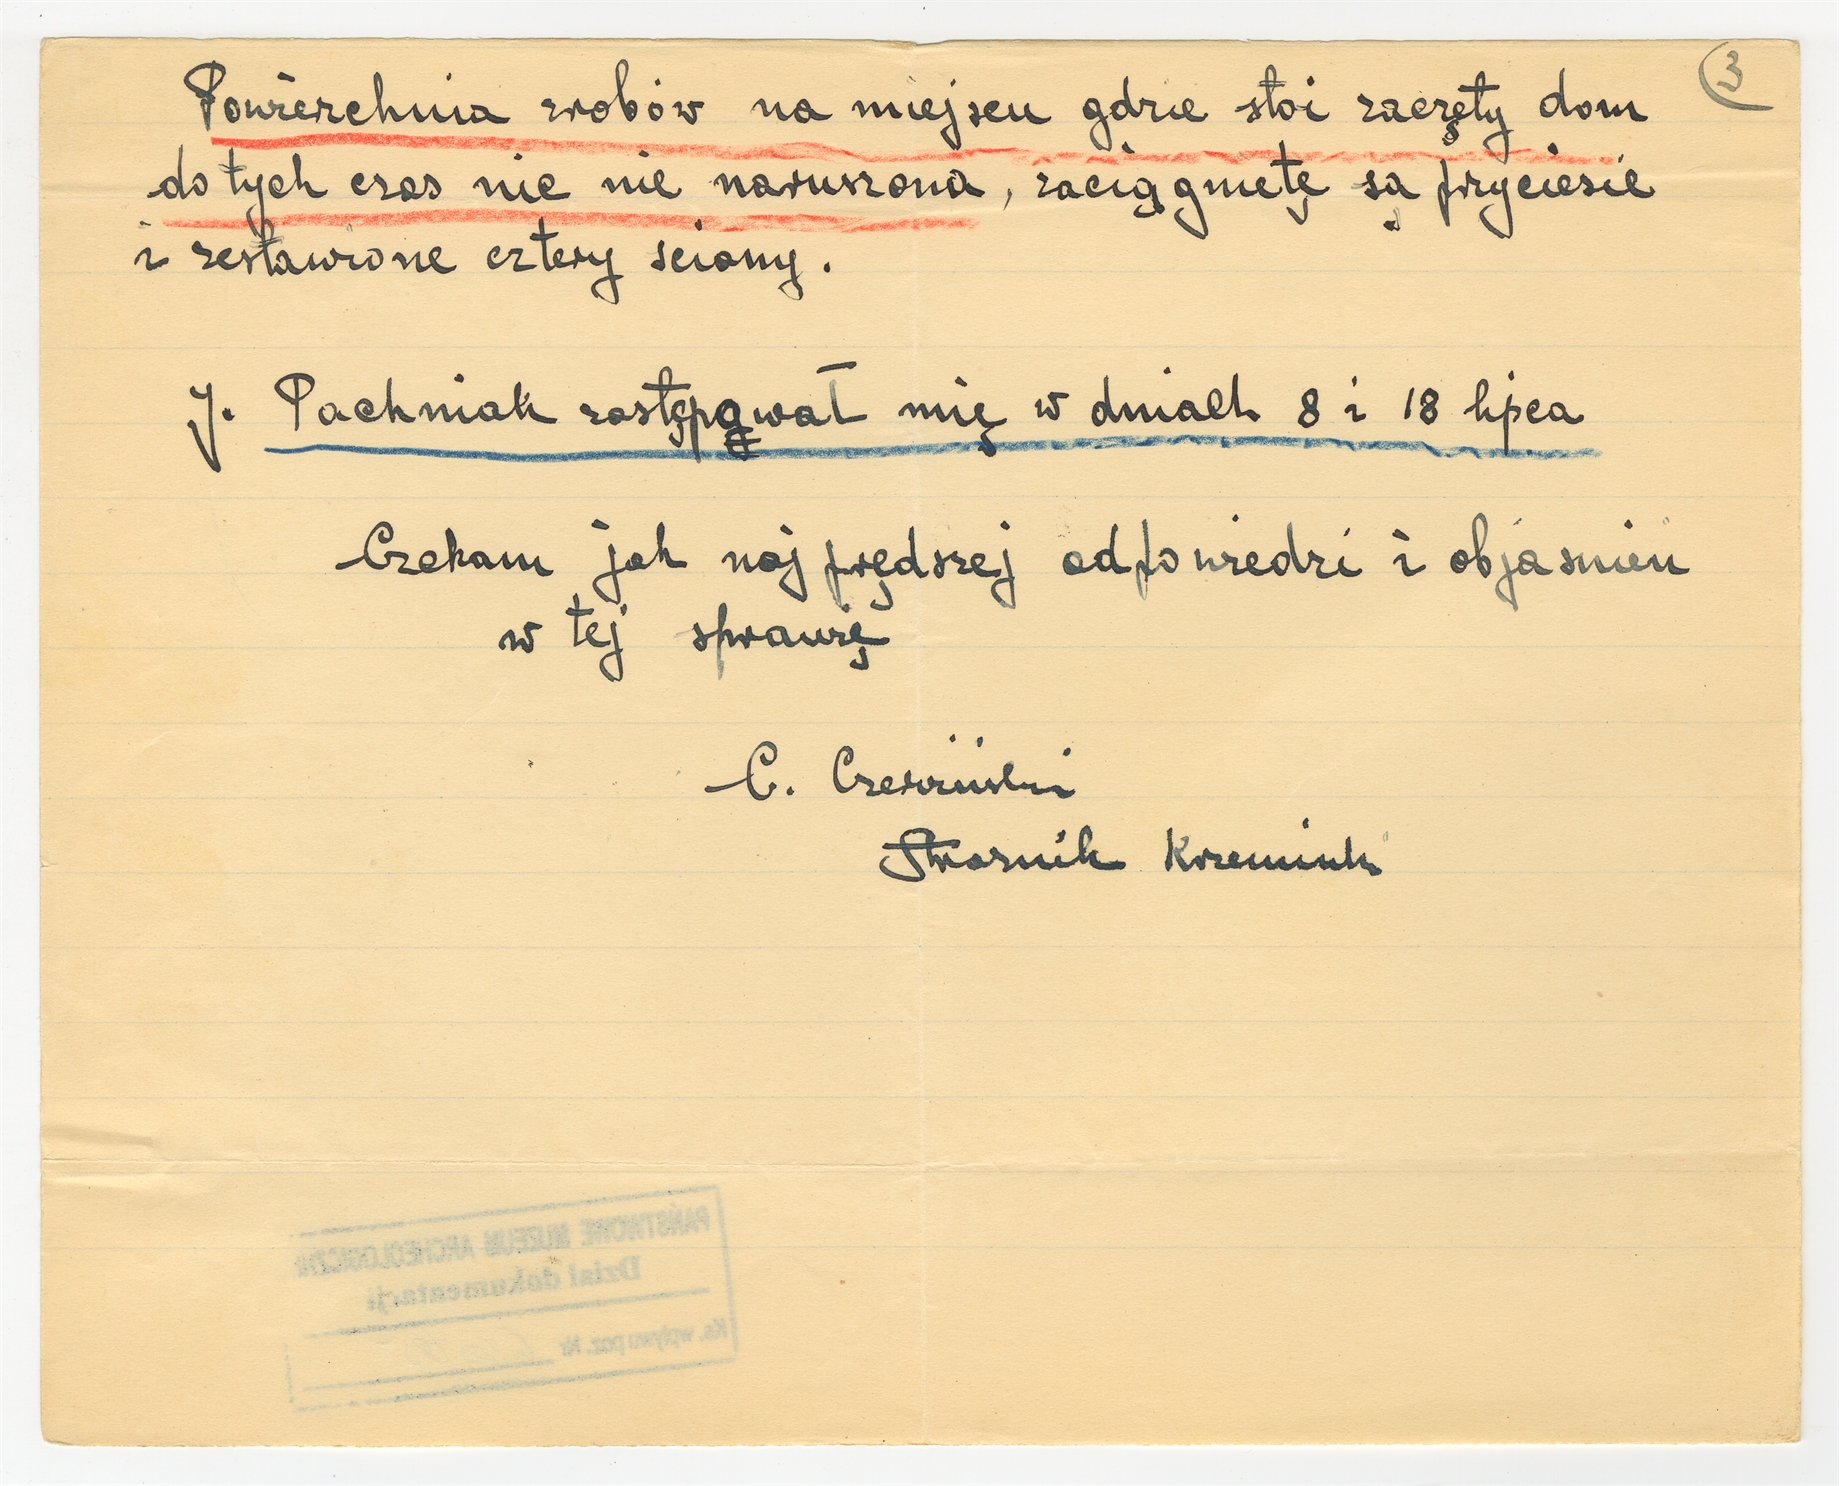 3
Powierzchnia zrobów na miejscu gdzie stoi zaczęty dom
do tych czas nic nie naruszona, zaciągmetę są przyciesie
i zestawione cztery sciany.
J. Pachniak zastępąwał mię w dniach 8 i 18 lipca
Czekam jak najprędszej odpowiedzi i objasnien
w tej sprawię
C. Czerwiński
Strażnik Krzemionk
PAŃSTWOWE MUZEUM ARCHEOLOGICZNE
Dział dokumentacji
Ks. wpływu poz. Nr